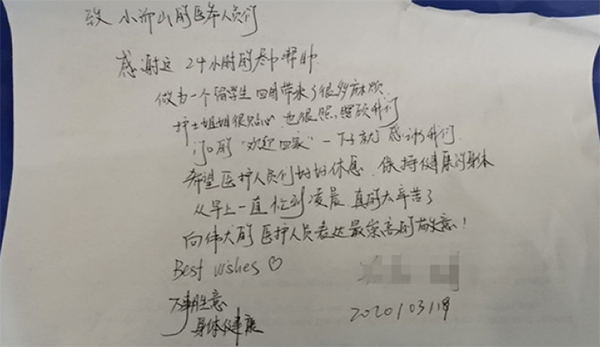 致 小汤山的医务人员们
感谢这 24小时的帮助
做为一个留学生 回国带来了很多麻烦
护士姐姐很贴心 也很照顾我们
的 "欢迎回家" 一下子就 感动我们
希望医护人员们好好休息 保持健康的身体
从早上一直忙到凌晨 真的太辛苦了
向伟大的医护人员表达最崇高的敬意!
Best wishes ♡
万事胜意
身体健康
2020/03/19